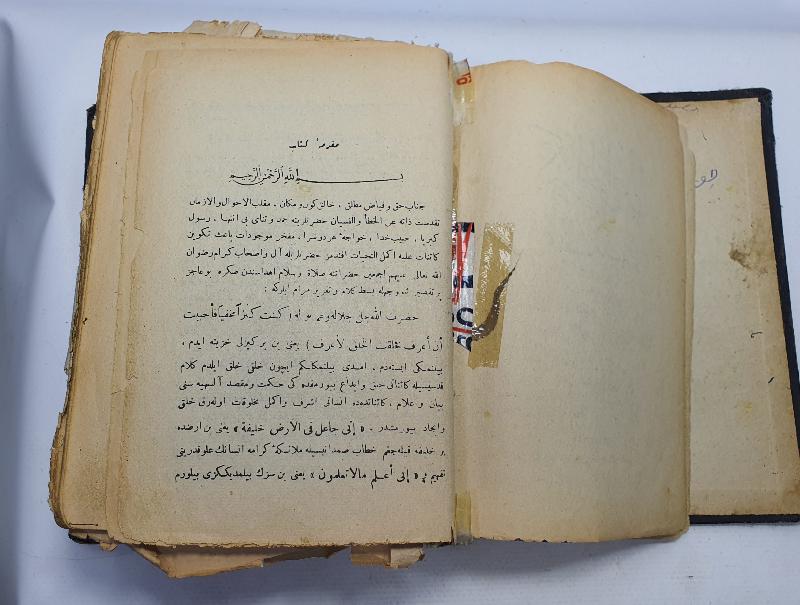 مقدمهٔ كتاب
بسم الله الرحمن الرحيم
جناب حق و فياض مطلق ، خالق كون و مكان ، مقلب الاحوال والازمان
تقدست ذاته عن الخطأ والنسيان حضرتلرينه حمد و ثنای بی انتها ، رسول
كبريا ، حبيب خدا ، خواجهٔ هر دوسرا ، مفخر موجودات باعث تكوين
كائنات عليه اكمل التحيات افندمز حضرتلريله آل و اصحاب كرام رضوان
الله تعالى عليهم اجمعين حضراتنه صلاة و سلام اهداسندن صكره بو عاجز
پر تقصير شو وجهله بسط كلام و تقرير مرام ايلركه :
حضرت الله جل جلاله و عم نواله ( كنت كنزاً مخفياً فأحببت
أن أعرف فخلقت الخلق لأعرف ) يعنى بن بر كيزلى خزينه ايدم ،
بيلنمكى ايستدم ، ايمدى بيلنمكلكم ايچون خلقى خلق ايلدم كلام
قدسيسيله كائناتى خلق و ابداع بيورمقده كى حكمت و مقصد آلهيه سنى
بيان و اعلام ، كائناتده ده انسانى اشرف و اكمل مخلوقات اوله رق خلق
و ايجاد بيورمشدر . « إنى جاعل فى الأرض خليفة » يعنى بن ارضده
بر خليفه قيله جغم خطاب صمدانيسيله ملائكهٔ كرامه انسانك علو قدرينى
تفهيم و « إنى أعلم مالا تعلمون » يعنى بن سزك بيلمديككزى بيلورم